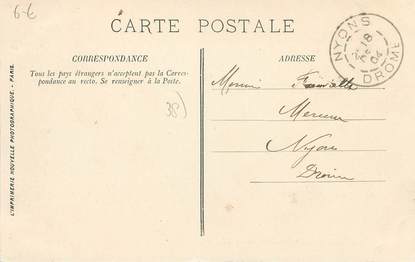 6-E
CARTE POSTALE
NYONS
18
04
DROME
CORRESPONDANCE
Tous les pays étrangers n'acceptent pas la Corres-
pondance au recto. Se renseigner à la Poste.
38)
ADRESSE
Monsieur
Nyons
Drôme
L'IMPRIMERIE NOUVELLE PHOTOGRAPHIQUE - PARIS.